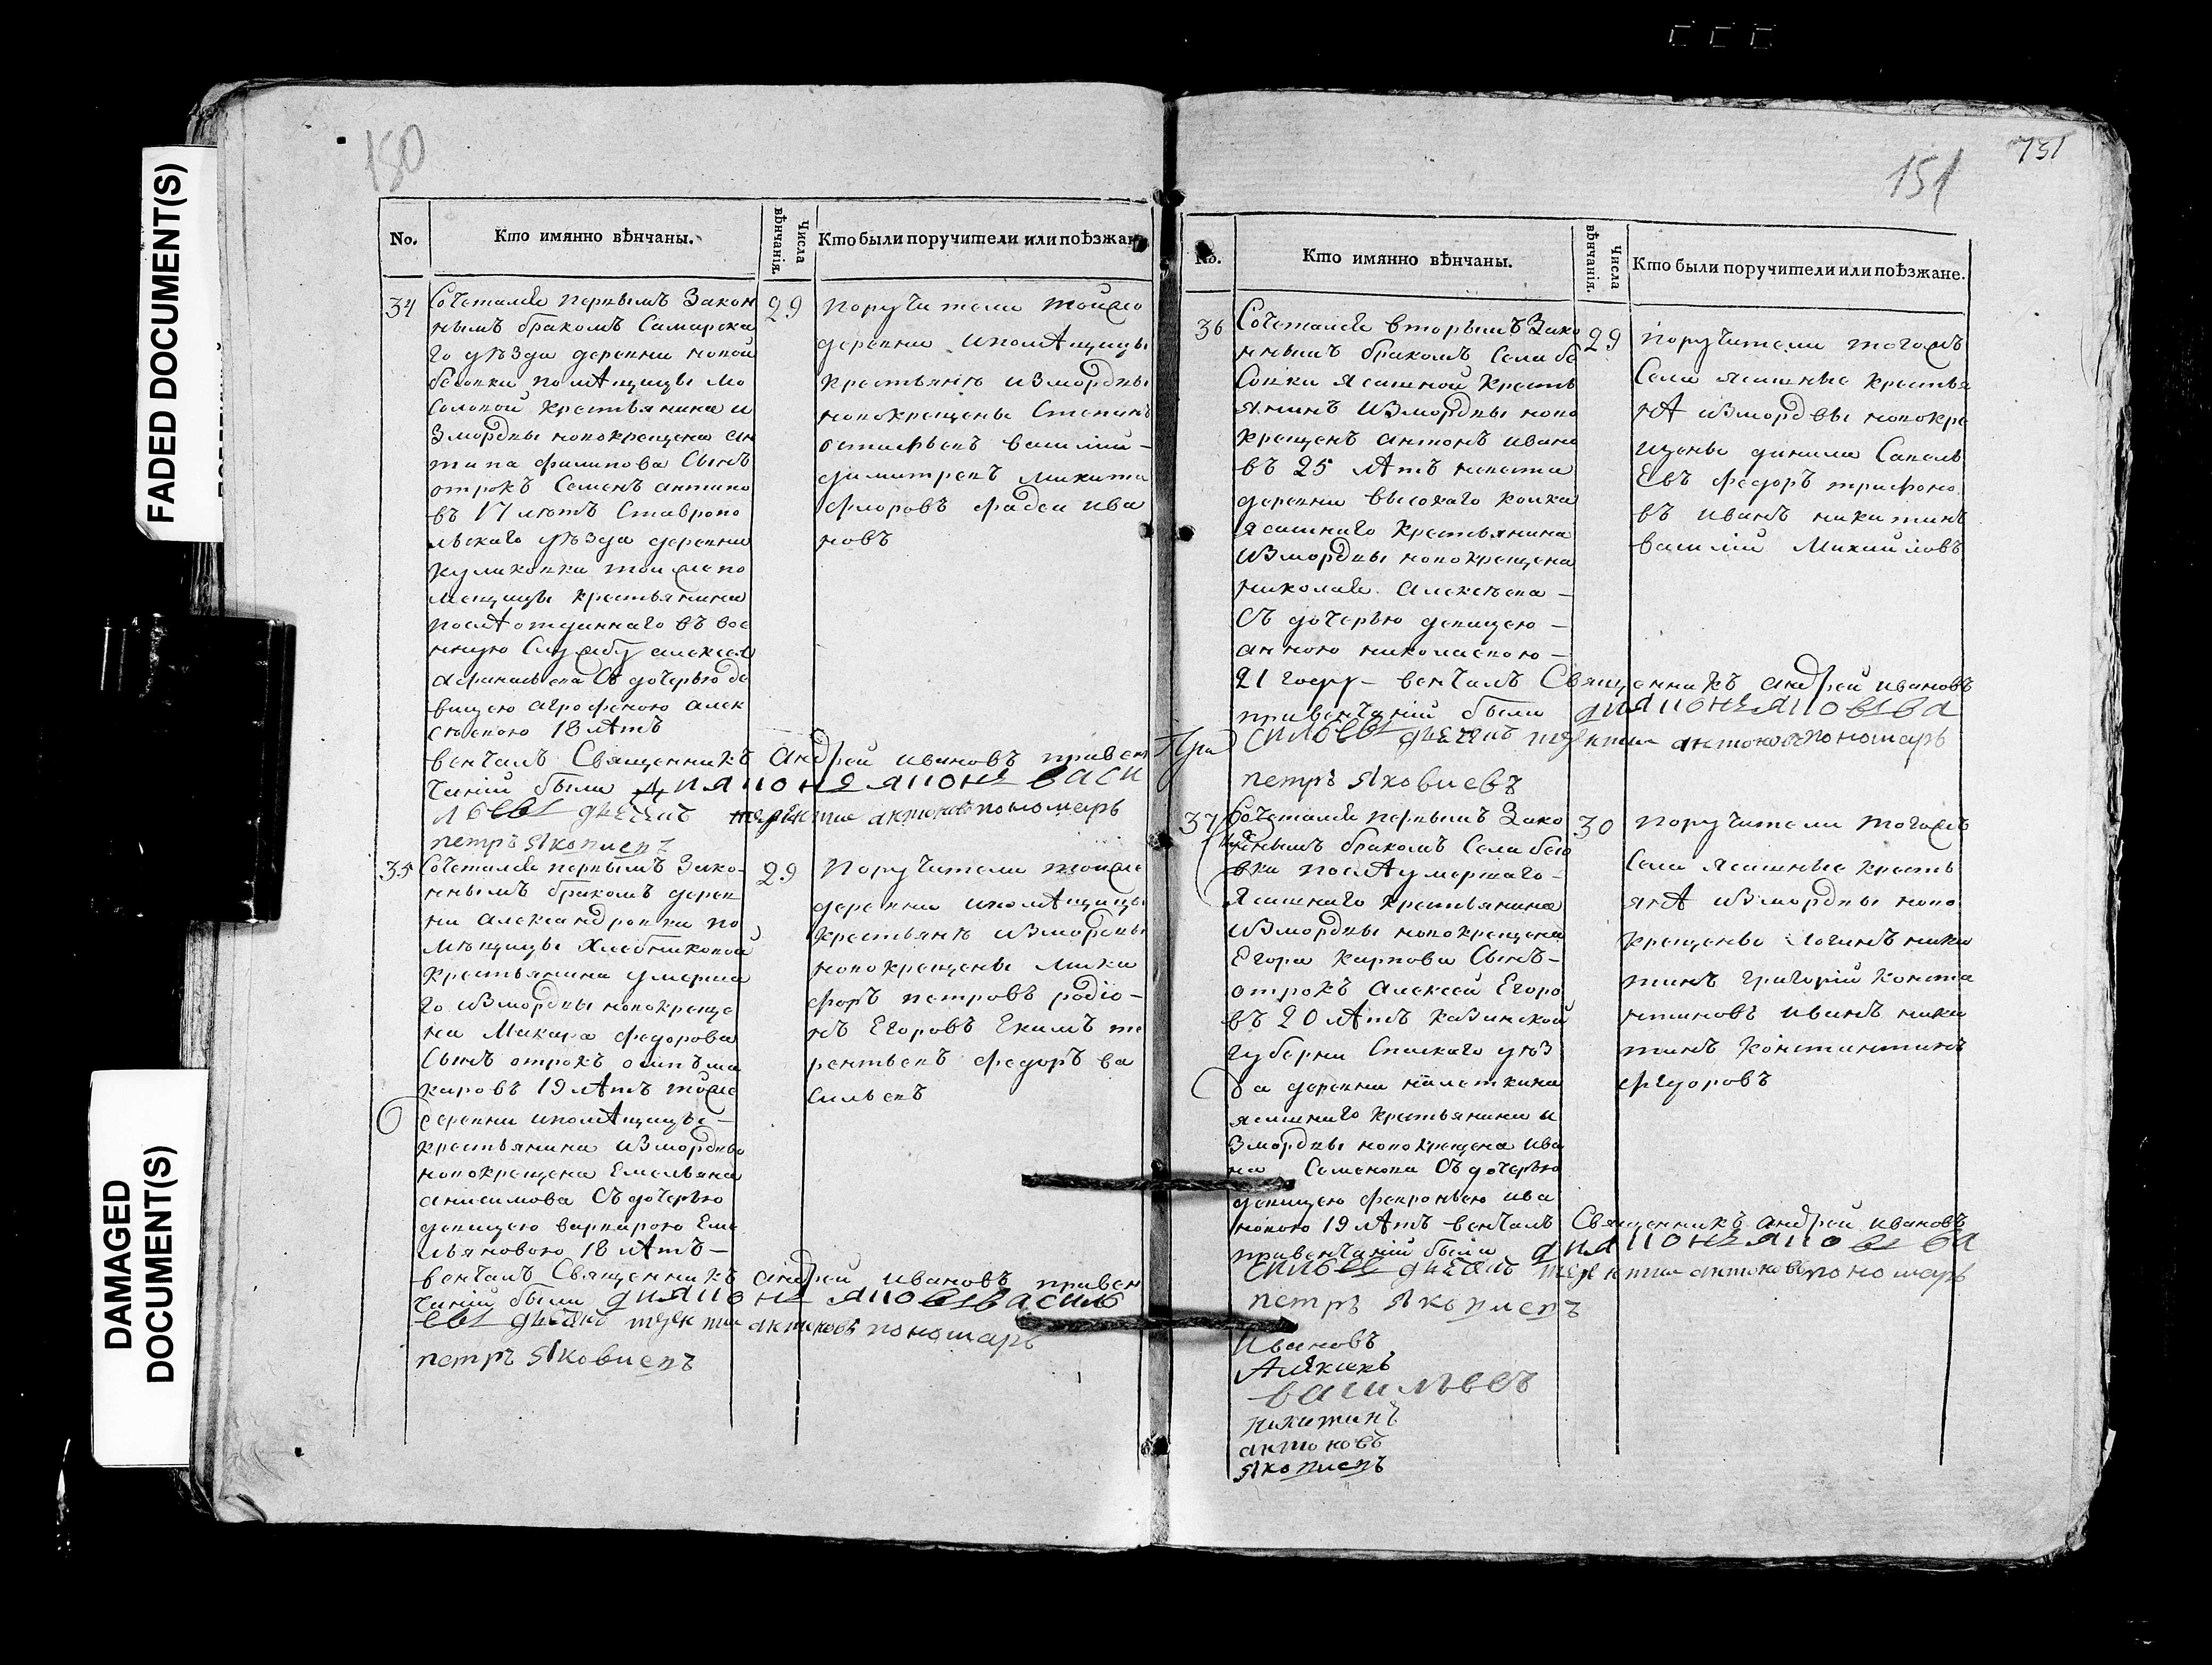 FADED DOCUMENT(S)
DAMAGED
DOCUMENT(S)
150
No.
Кто имянно вѣнчаны.
Числа
вѣнчанія.
Кто были поручители или поѣзжан
34
Сочетался первымъ Закон
нымъ бракомъ Самарска
го уѣзда деревни новой
бесовки помѣщицы Мо
соловой крестьянина и
Змордвы новокрещена ан
типа филипова Сынъ
отрокъ Семенъ антипо
въ 17 лѣтъ Ставропо
льскаго уѣзда деревни
куликовки тои же по
мещицы крестьянина
послѣ отданнаго въ вое
нную Службу алексея
афанасьева Съ дочерью де
вицею агрофеною алек
сѣевою 18 лѣтъ
венчалъ Священникъ андрей ивановъ привен
чаніи были
пономарь
петръ Яковлевъ
29
поручители тойже
деревни ипомѣщицы
крестьянѣ измордвы
новокрещены Степанъ
остафьевъ василій
димитревъ микита
фроловъ фадеи ива
новъ
35
Сочетался первымъ Зако-
ннымъ бракомъ дерев
ни александровки по
мѣщицы Хлебниковой
крестьянина умерша
го измордвы новокреще
на Макара федорова
Сынъ отрокъ осипъ ма
каровъ 19 лѣтъ тойже
деревни ипомѣщицы
крестьянина измордвы
новокрещена Емельяна
анисимова Съ дочерью
девицею варварою Еме
льяновою 18 лѣтъ
венчалъ Священникъ андрей ивановъ привен
чаніи были
пономарь
петръ Яковлевъ
29
Поручители тойже
деревни ипомѣщицы
крестьянѣ измордвы
новокрещены Мики
форъ петровъ родіо-
нъ Егоровъ Екимъ те
рентьевъ федоръ ва
сильевъ
151
151
No.
Кто имянно вѣнчаны.
Числа
вѣнчанія.
Кто были поручители или поѣзжане.
36
Сочетался вторымъ Зако
ннымъ бракомъ Села бе
Совки ясашной кресть
янинъ измордвы ново
крещенъ антонъ ивано
въ 25 лѣтъ
деревни высокаго колка
ясашнаго крестьянина
измордвы новокрещена
николая алексѣева
Съ дочерью девицею
анною николаевою
21 году венчалъ Священникъ андрей ивановъ
привенчаніи были
пономарь
петръ Яковлевъ
29
поручители тогожъ
Села ясашные крестья
нѣ измордвы новокре
щены данила Савель
Евъ федоръ трифоно
въ иванъ никитинъ
василій Михайловъ
37
Сочетался первымъ Зако
ннымъ бракомъ Села бесо
вки послѣ умершаго
ясашнаго крестьянина
измордвы новокрещена
Егора карпова Сынъ-
отрокъ алексей Егоро
въ 20 лѣтъ казанской
губерни Спаскаго уѣз
да деревни
ясашнаго крестьянина и
Змордвы новокрещена ива
на Семенова Съ дочерью
девицею февроньею ива
новою 19 лѣтъ венчалъ Священникъ андрей ивановъ
привенчаніи были
пономарь
петръ Яковлевъ
30
поручители тогожъ
Села ясашные кресть
янѣ измордвы ново
крещены логинъ ники
тинъ григорій конста
нтиновъ иванъ ники
тинъ константинъ
федоровъ
Ивановъ
васильевъ
Никитинъ
антоновъ
Яковлевъ